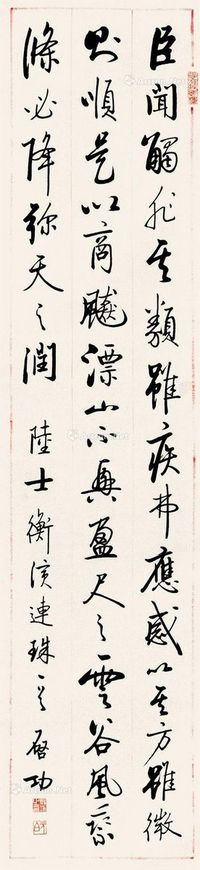 臣聞觸非其類雖疾弗應感以其方雖微
則順是以商飆漂山不興盈尺之雲谷風乘
條必降彌天之潤 陸士衡演連珠一首 啟功